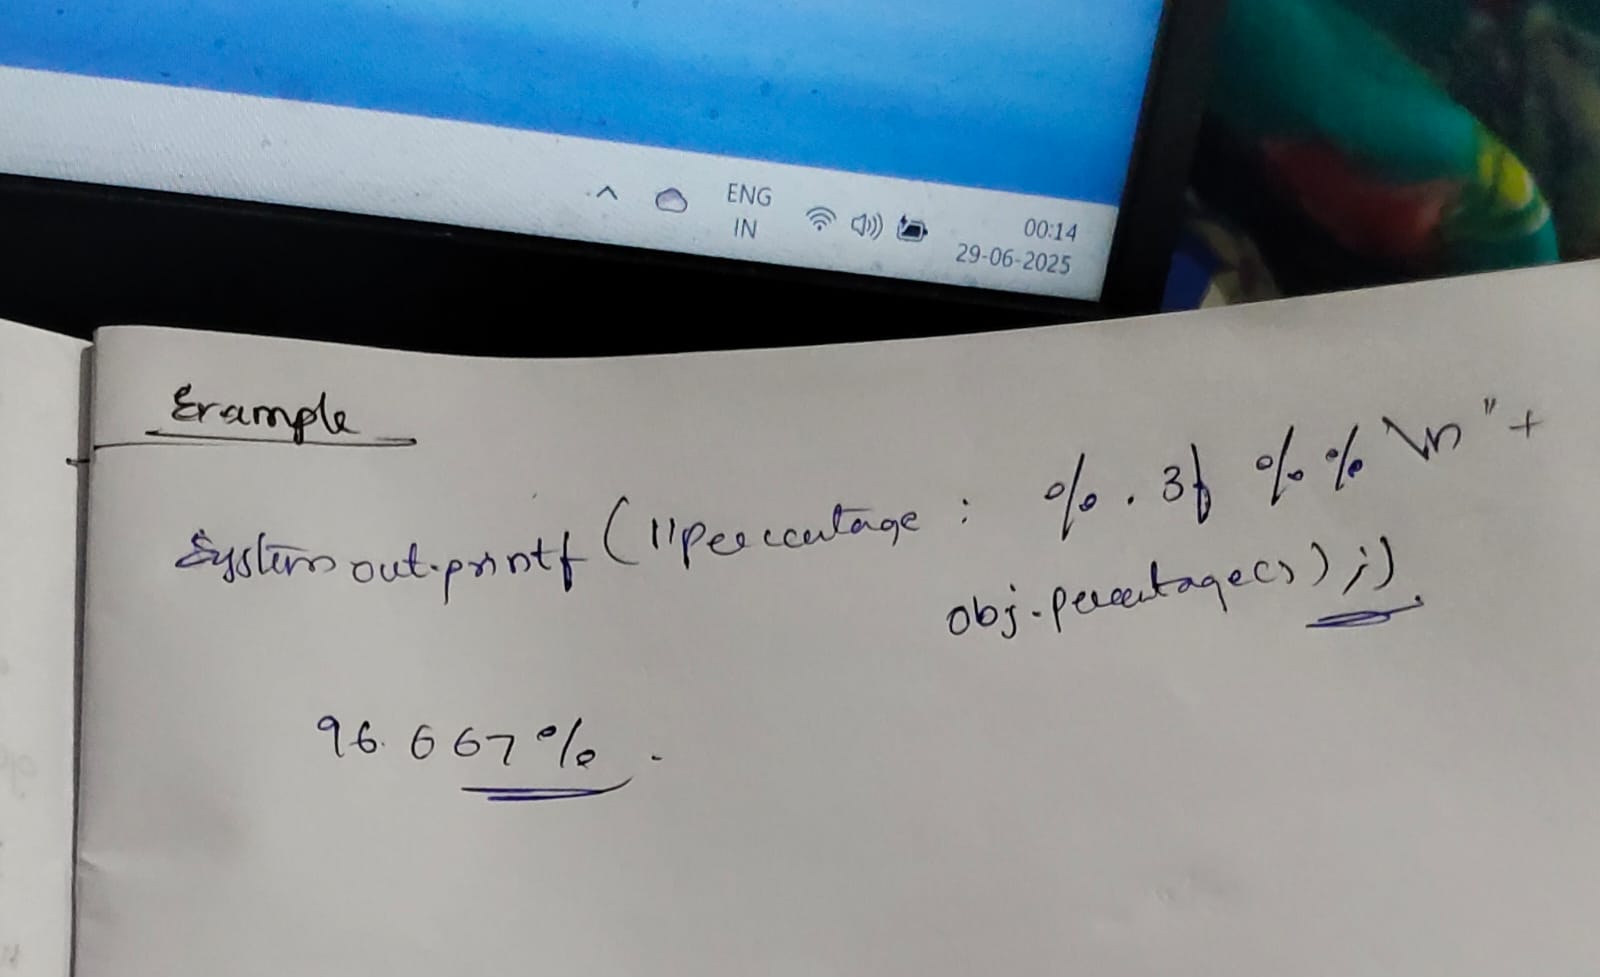 ENG
IN
00:14
29-06-2025
Example
System out.printf ("percentage : %.3f %% \n" +
obj.percentage(s) ;)
96.667%.